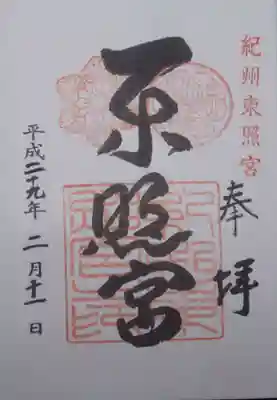 紀州東照宮
奉拝
東照宮
平成二十九年 二月十一日